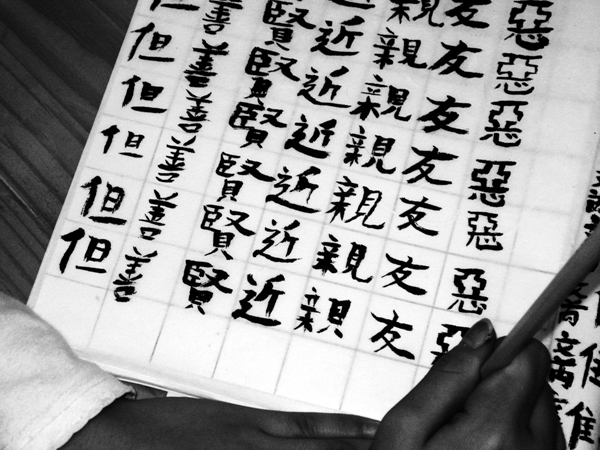 惡惡惡惡惡惡惡
友友友友友友友
親親親親親親親
近近近近近近近
賢賢賢賢賢賢
善善善善善善善
但但但但但但